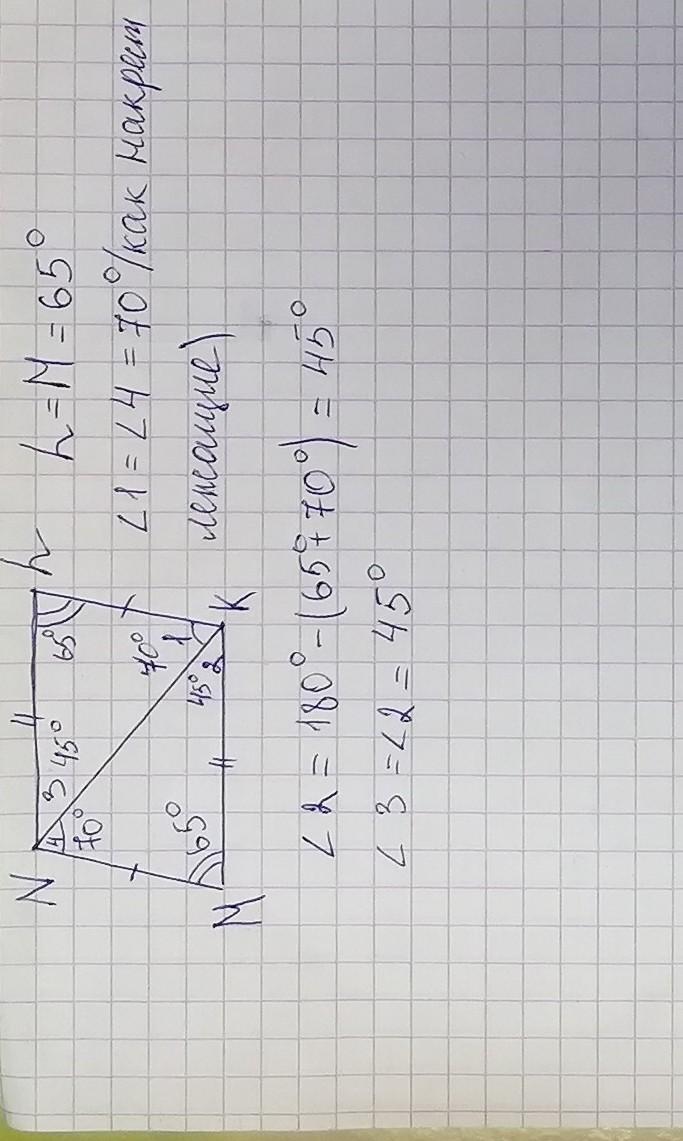 N
h
3 45°
65°
4
70°
70°
1
65°
45°
2
M
K
h = M = 65°
∠1 = ∠4 = 70° (как накрест
лежащие)
∠2 = 180° - (65° + 70°) = 45°
∠3 = ∠2 = 45°